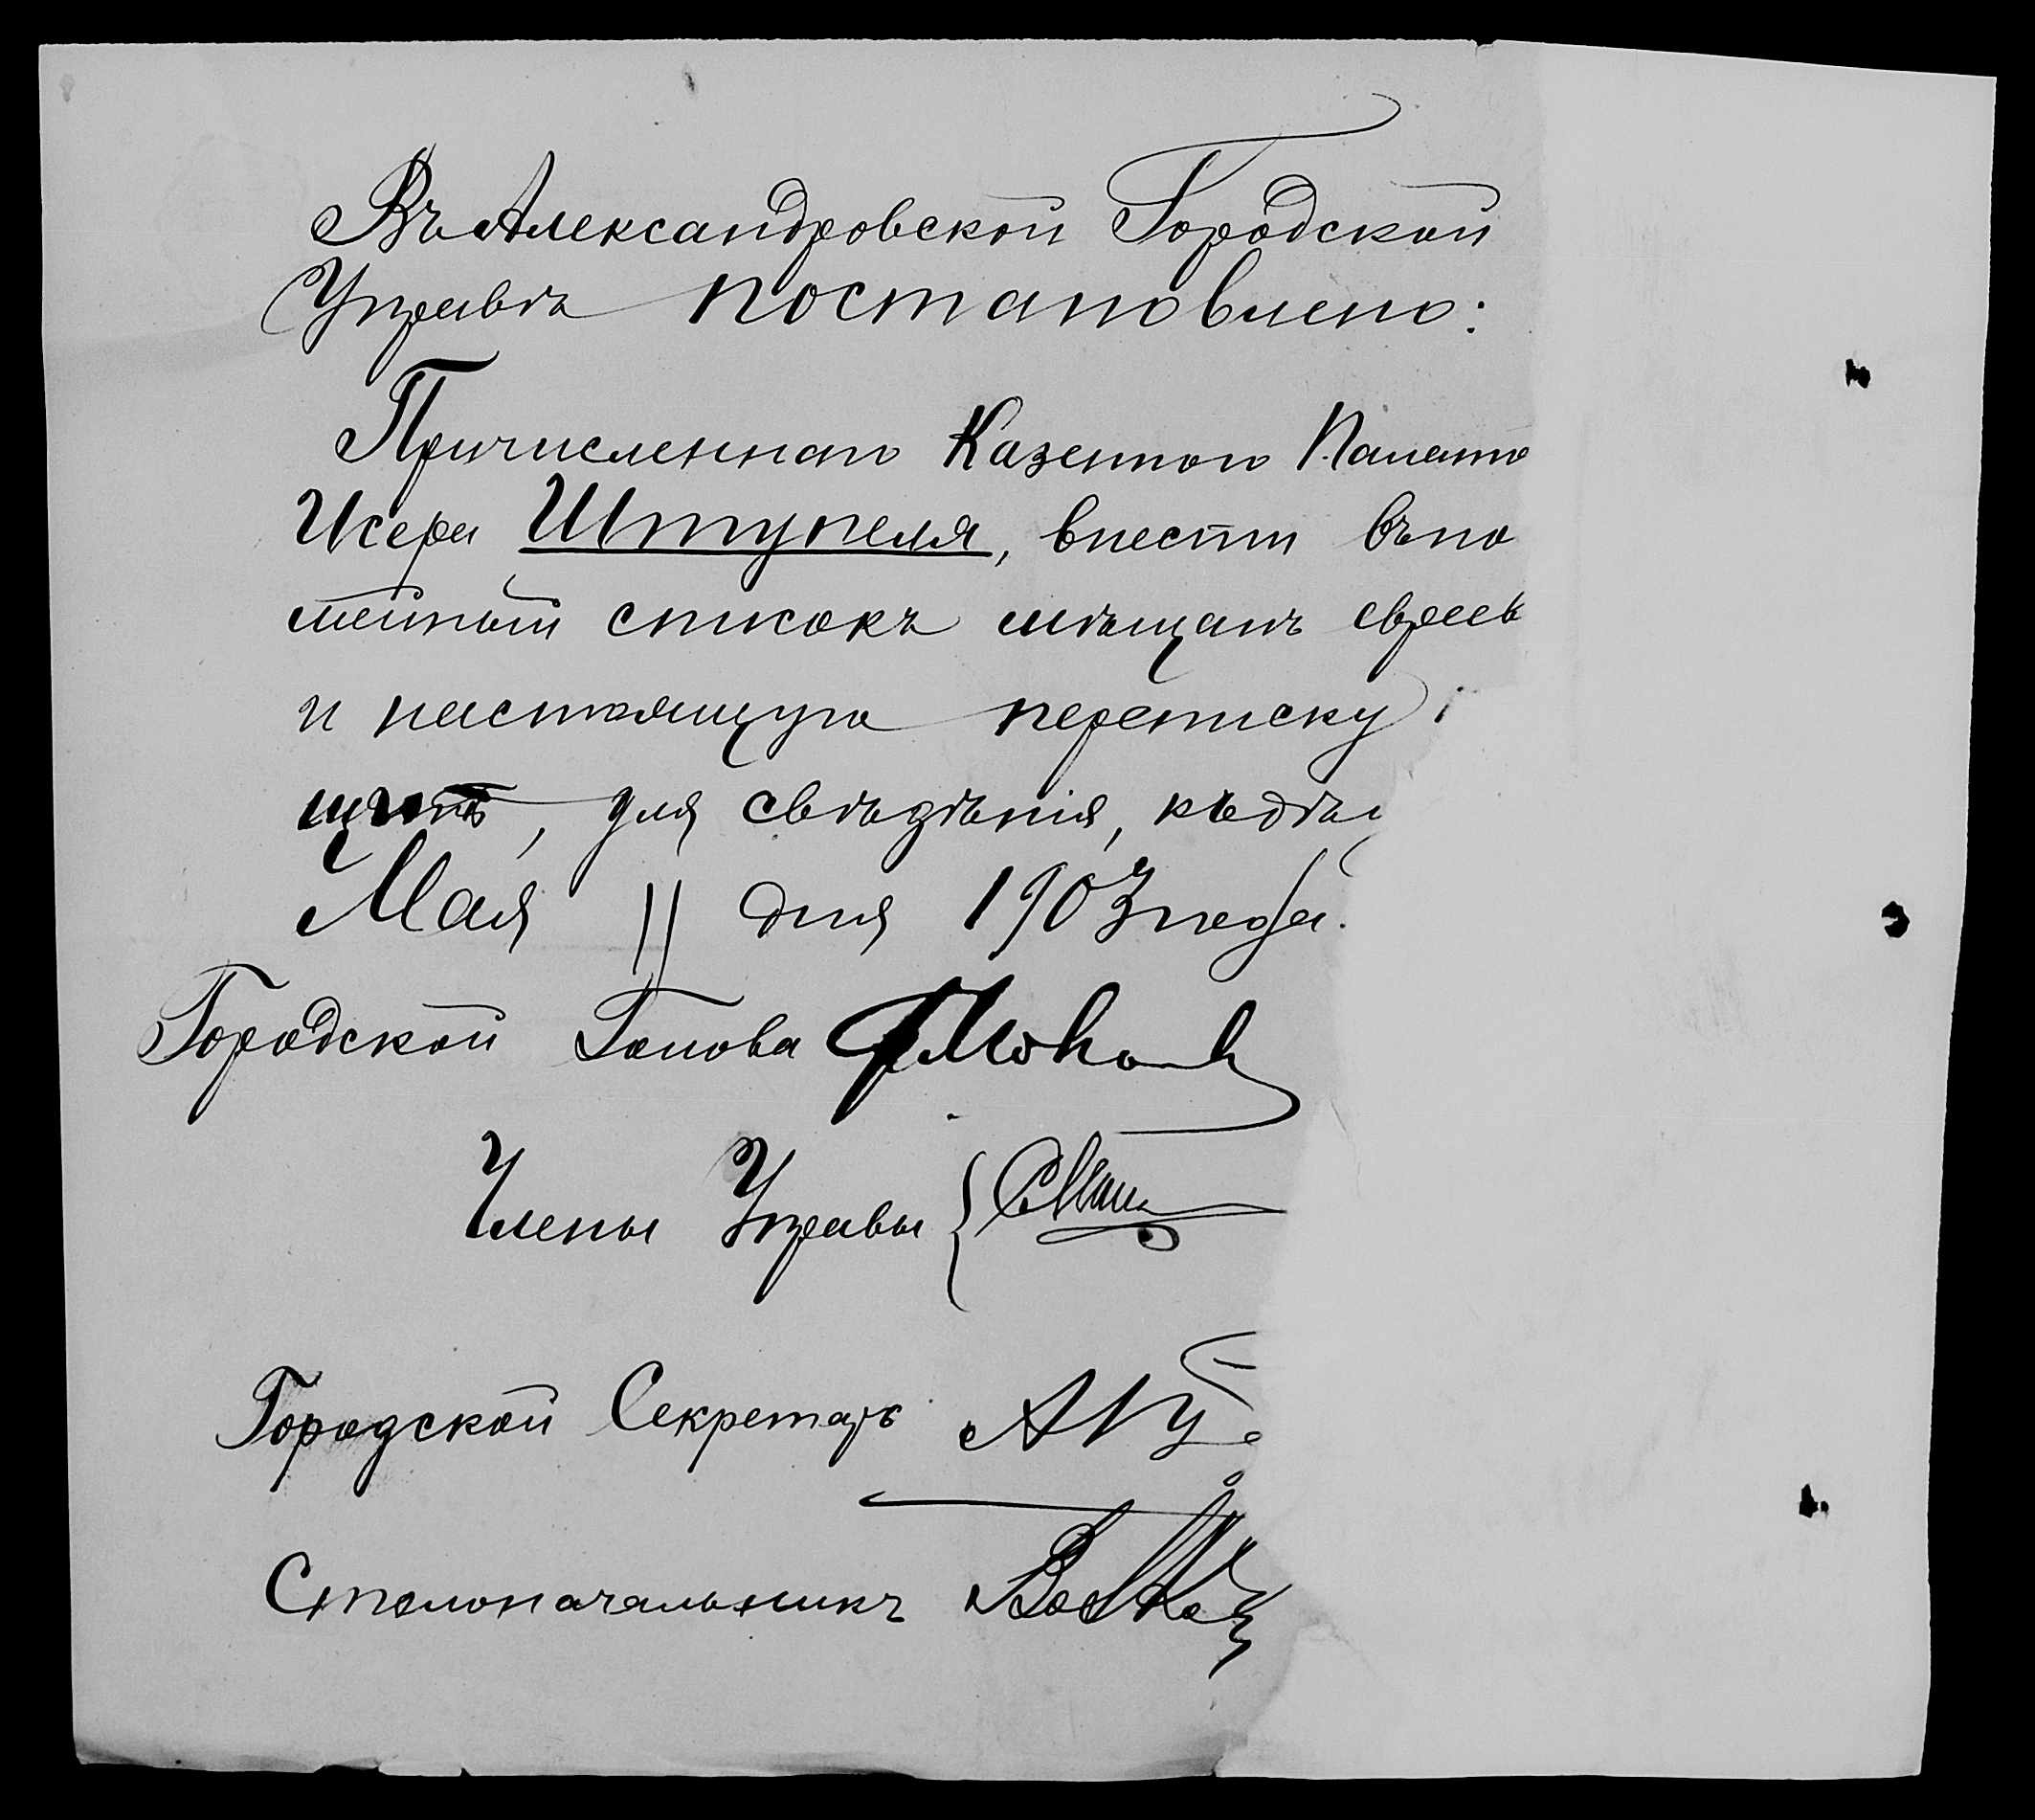 Въ Александровской Городской
Управѣ постановлено:
Причисленнаго Казенною Палато
Исера Штупеля, внести въ по
мейный списокъ мѣщанъ еврее
и настоящую переписку
щить, для свѣдѣнія, къ дѣл
Мая 11 дня 1903 года.
Городской Голова
Члены Управы {
Городской Секретарь
Столоначальникъ